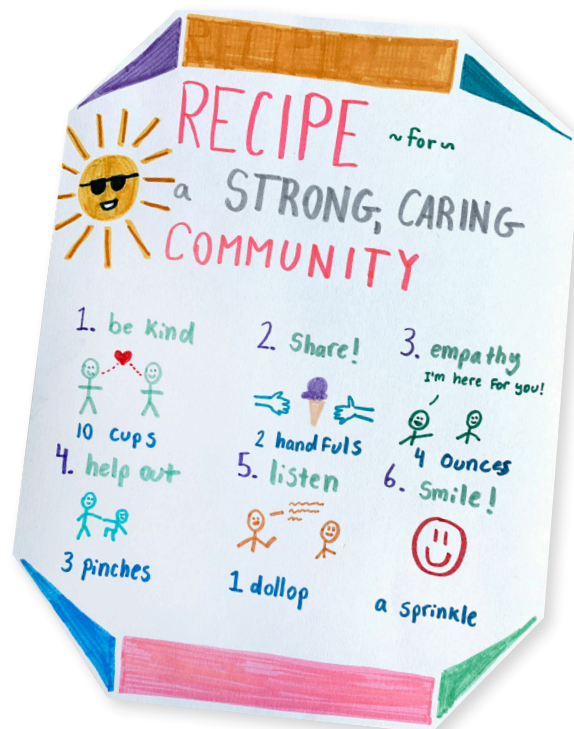 RECIPE ~for~
a STRONG, CARING
COMMUNITY
1. be kind
10 cups
2. Share!
2 handfuls
3. empathy
I'm here for you!
4 ounces
4. help out
3 pinches
5. listen
1 dollop
6. Smile!
a sprinkle